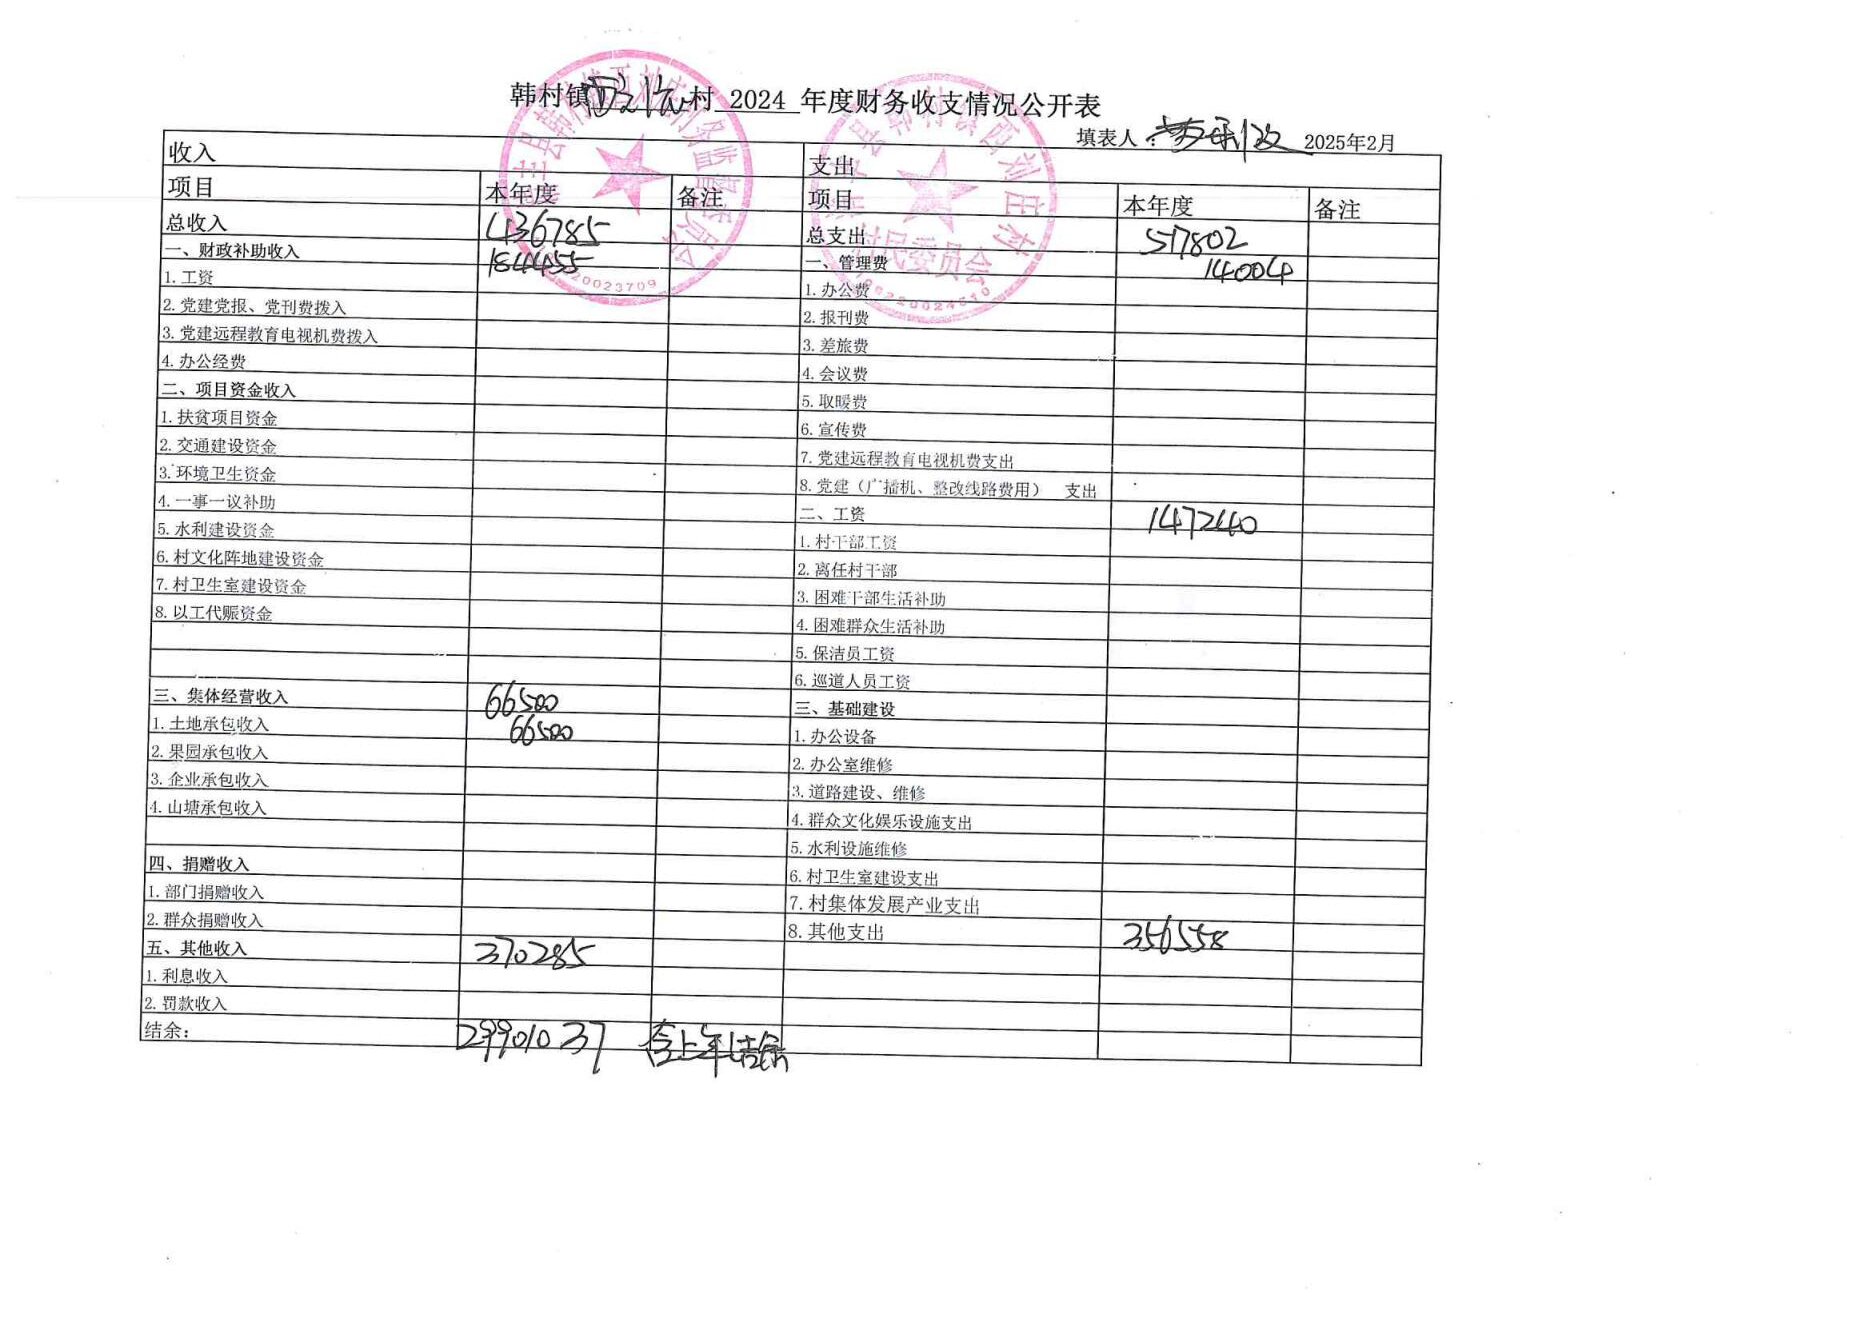 韩村镇西刘庄村 2024 年度财务收支情况公开表
填表人 2025年2月
收入 支出
项目 本年度 备注 项目 本年度 备注
总收入 436785 总支出 517802
一、财政补助收入 184455 一、管理费 14004
1.工资 1.办公费
2.党建党报、党刊费拨入 2.报刊费
3.党建远程教育电视机费拨入 3.差旅费
4.办公经费 4.会议费
二、项目资金收入 5.取暖费
1.扶贫项目资金 6.宣传费
2.交通建设资金 7.党建远程教育电视机费支出
3.环境卫生资金 8.党建（广播机、整改线路费用） 支出
4.一事一议补助 二、工资 147240
5.水利建设资金 1.村干部工资
6.村文化阵地建设资金 2.离任村干部
7.村卫生室建设资金 3.困难干部生活补助
8.以工代赈资金 4.困难群众生活补助
5.保洁员工资
6.巡道人员工资
三、集体经营收入 66500 三、基础建设
1.土地承包收入 66500 1.办公设备
2.果园承包收入 2.办公室维修
3.企业承包收入 3.道路建设、维修
4.山塘承包收入 4.群众文化娱乐设施支出
5.水利设施维修
四、捐赠收入 6.村卫生室建设支出
1.部门捐赠收入 7.村集体发展产业支出
2.群众捐赠收入 8.其他支出 356558
五、其他收入 370285
1.利息收入
2.罚款收入
结余： 299010 37 含上年结余